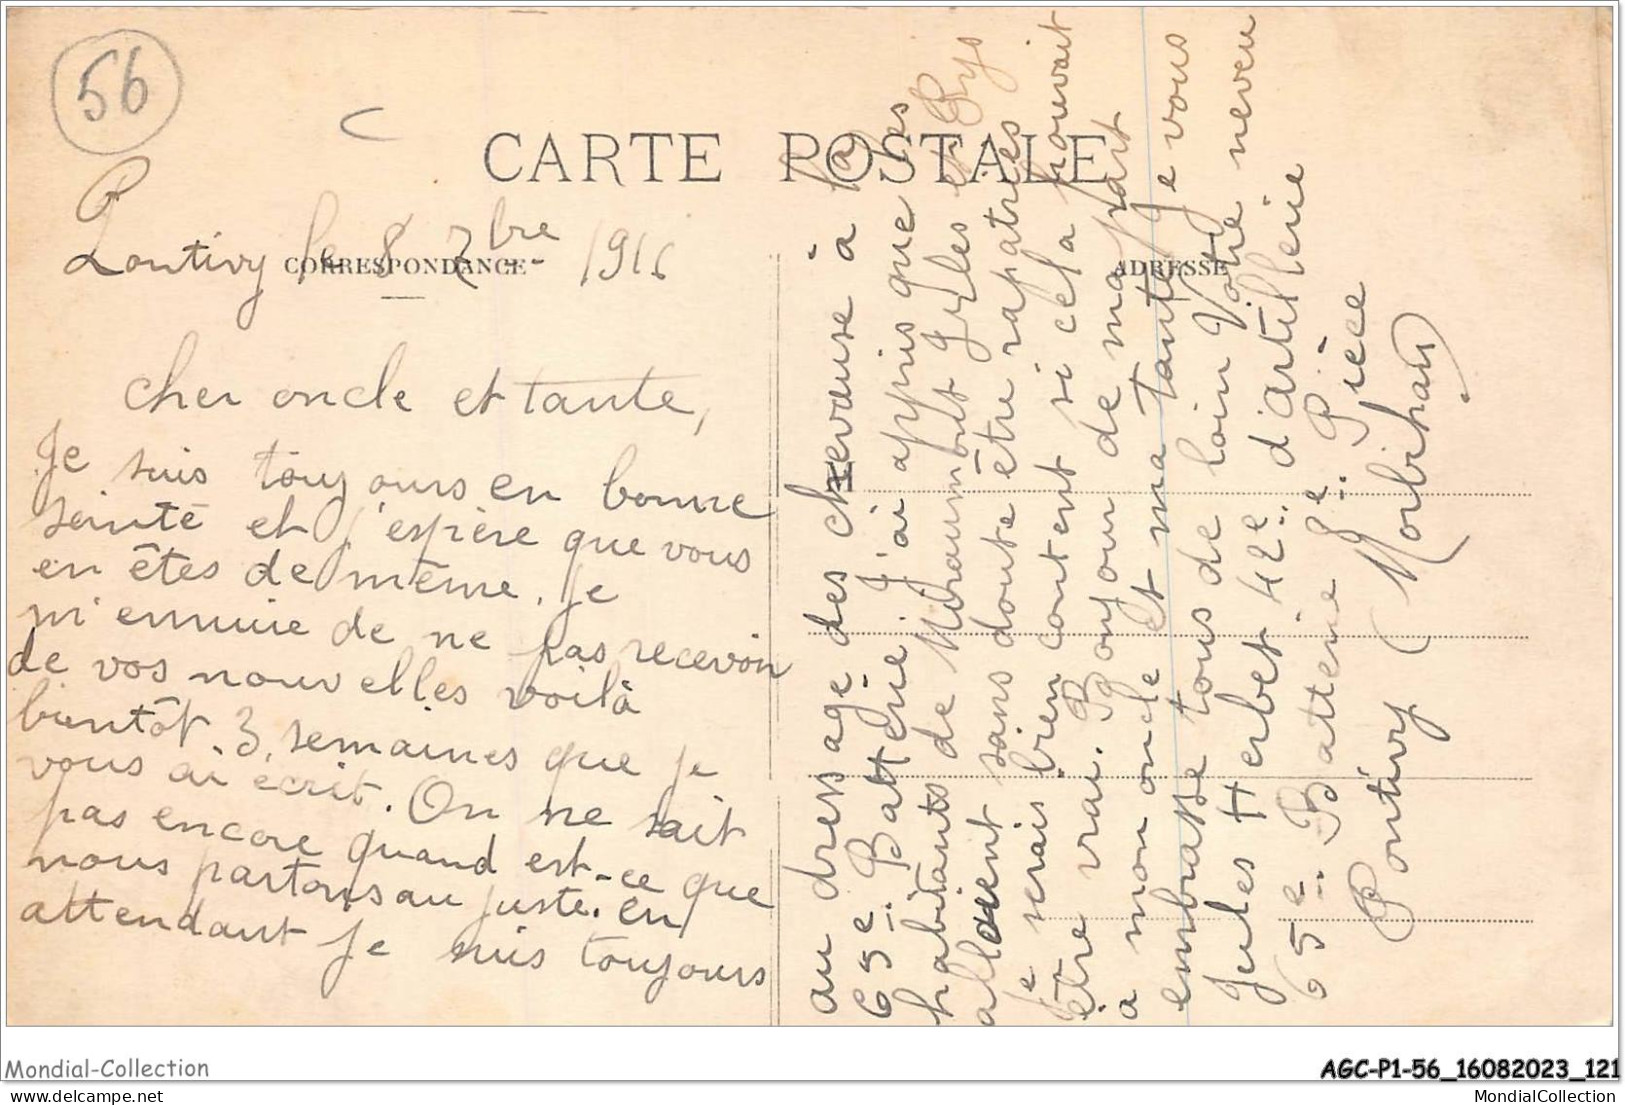 56
CARTE POSTALE
Pontivy le 8 7bre 1916
CORRESPONDANCE
ADRESSE
Cher oncle et tante,
Je suis toujours en bonne
santé et j'espère que vous
en êtes de même. Je
m'ennuie de ne pas recevoir
de vos nouvelles voilà
bientôt 3 semaines que je
vous ai écrit. On ne sait
pas encore quand est-ce que
nous partons au juste. En
attendant je suis toujours
au dressage des chevause à la
65e Batterie. J'ai appris que les
habitants de Miraumont Gyles et Pys
allaient sans doute être rapatriés
Je serais bien content si cela pouvait
être vrai. Bonjour de ma part
a mon oncle et ma tante Je vous
embrasse tous de loin Votre neveu
Jules Herbet 42e d'artillerie
65e Batterie 2e Pièce
Pontivy (Morbihan)
Mondial-Collection
AGC-P1-56_16082023_121
www.delcampe.net
MondialCollection